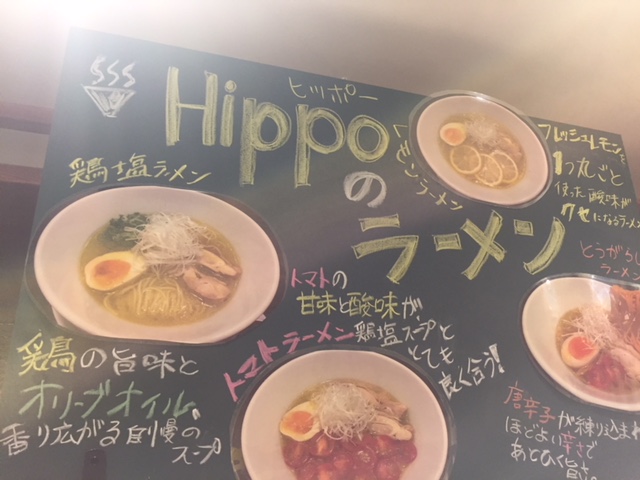 ヒッポー
Hippo
の
ラーメン
鶏塩ラーメン
鶏の旨味と
オリーブオイル
香り広がる自慢の
スープ
レモンラーメン
フレッシュレモンを
1つ丸ごと
使った酸味が
クセになるラーメン
トマトの
甘味と酸味が、
トマトラーメン
鶏塩スープと
とても
良く合う!
とうがらし
ラーメン
唐辛子が練り込まれ
ほどよい辛さで
あとひく旨